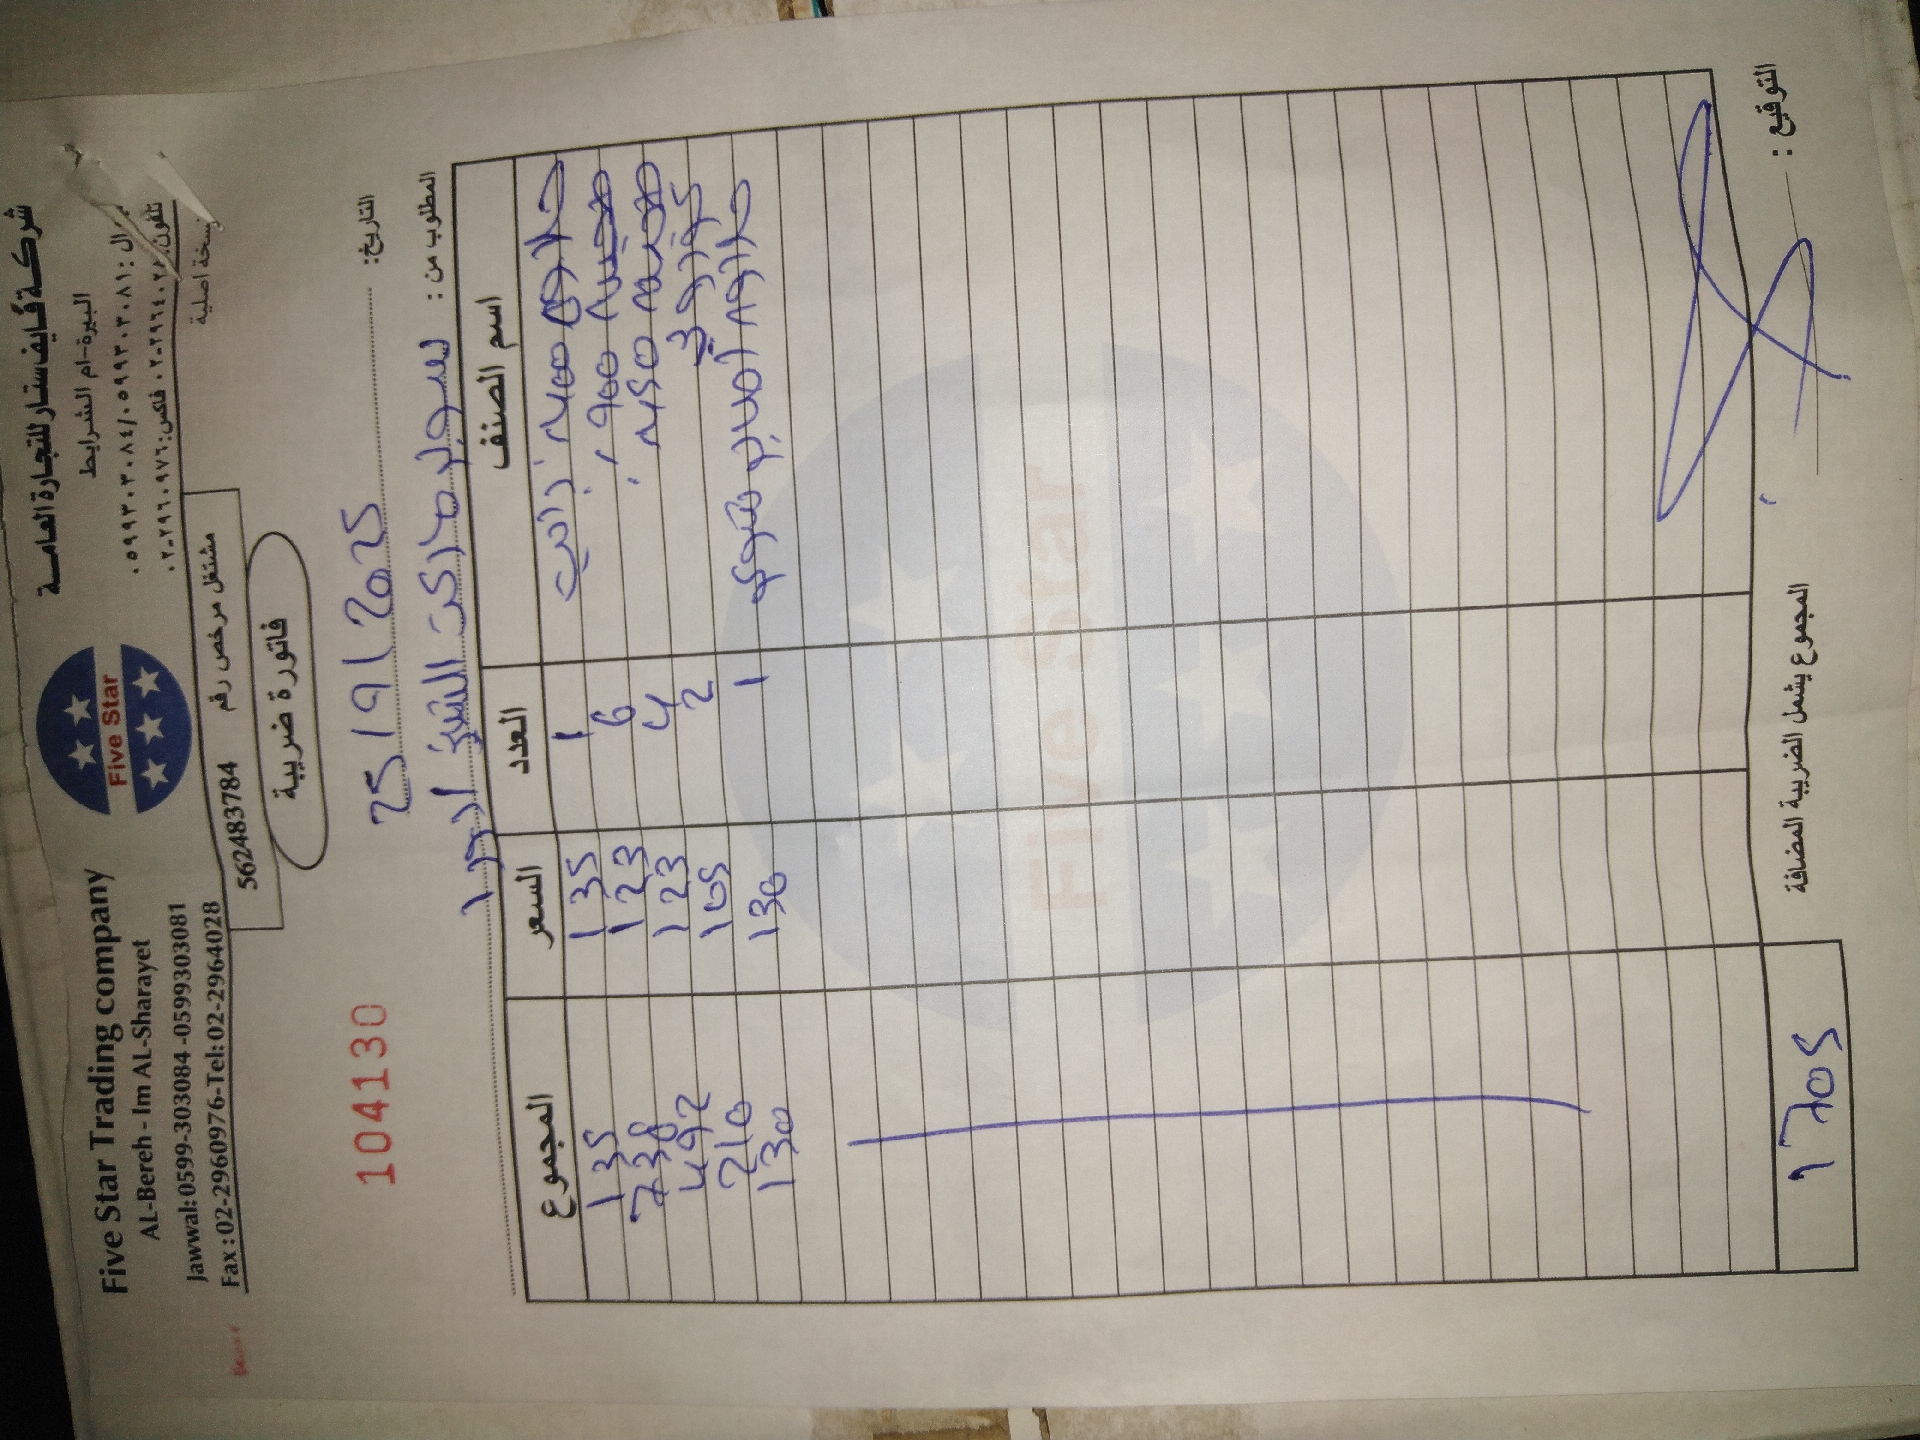 Five Star Trading company
AL-Bereh - Im AL-Sharayet
Jawwal:0599-303084 -0599303081
Fax : 02-2960976-Tel: 02-2964028
Five Star
شركة فايف ستار للتجارة العامة
البيرة-ام الشرايط
جوال: ٠٥٩٩٣٠٣٠٨٤/٠٥٩٩٣٠٣٠٨١
تلفون: ٠٢-٢٩٦٤٠٢٨ فاكس: ٠٢-٢٩٦٠٩٧٦
نسخة اصلية
مشتغل مرخص رقم 562483784
فاتورة ضريبية
104130
التاريخ: 25/9/2025
المطلوب من: سوبر ماركت الشيخ
اسم الصنف العدد السعر المجموع
حلاوة 400 1 135 135
900 6 123 738
450 4 123 492
2 105 210
حلاوة اصابع 1 130 130
Five Star
المجموع يشمل الضريبة المضافة 1705
التوقيع :